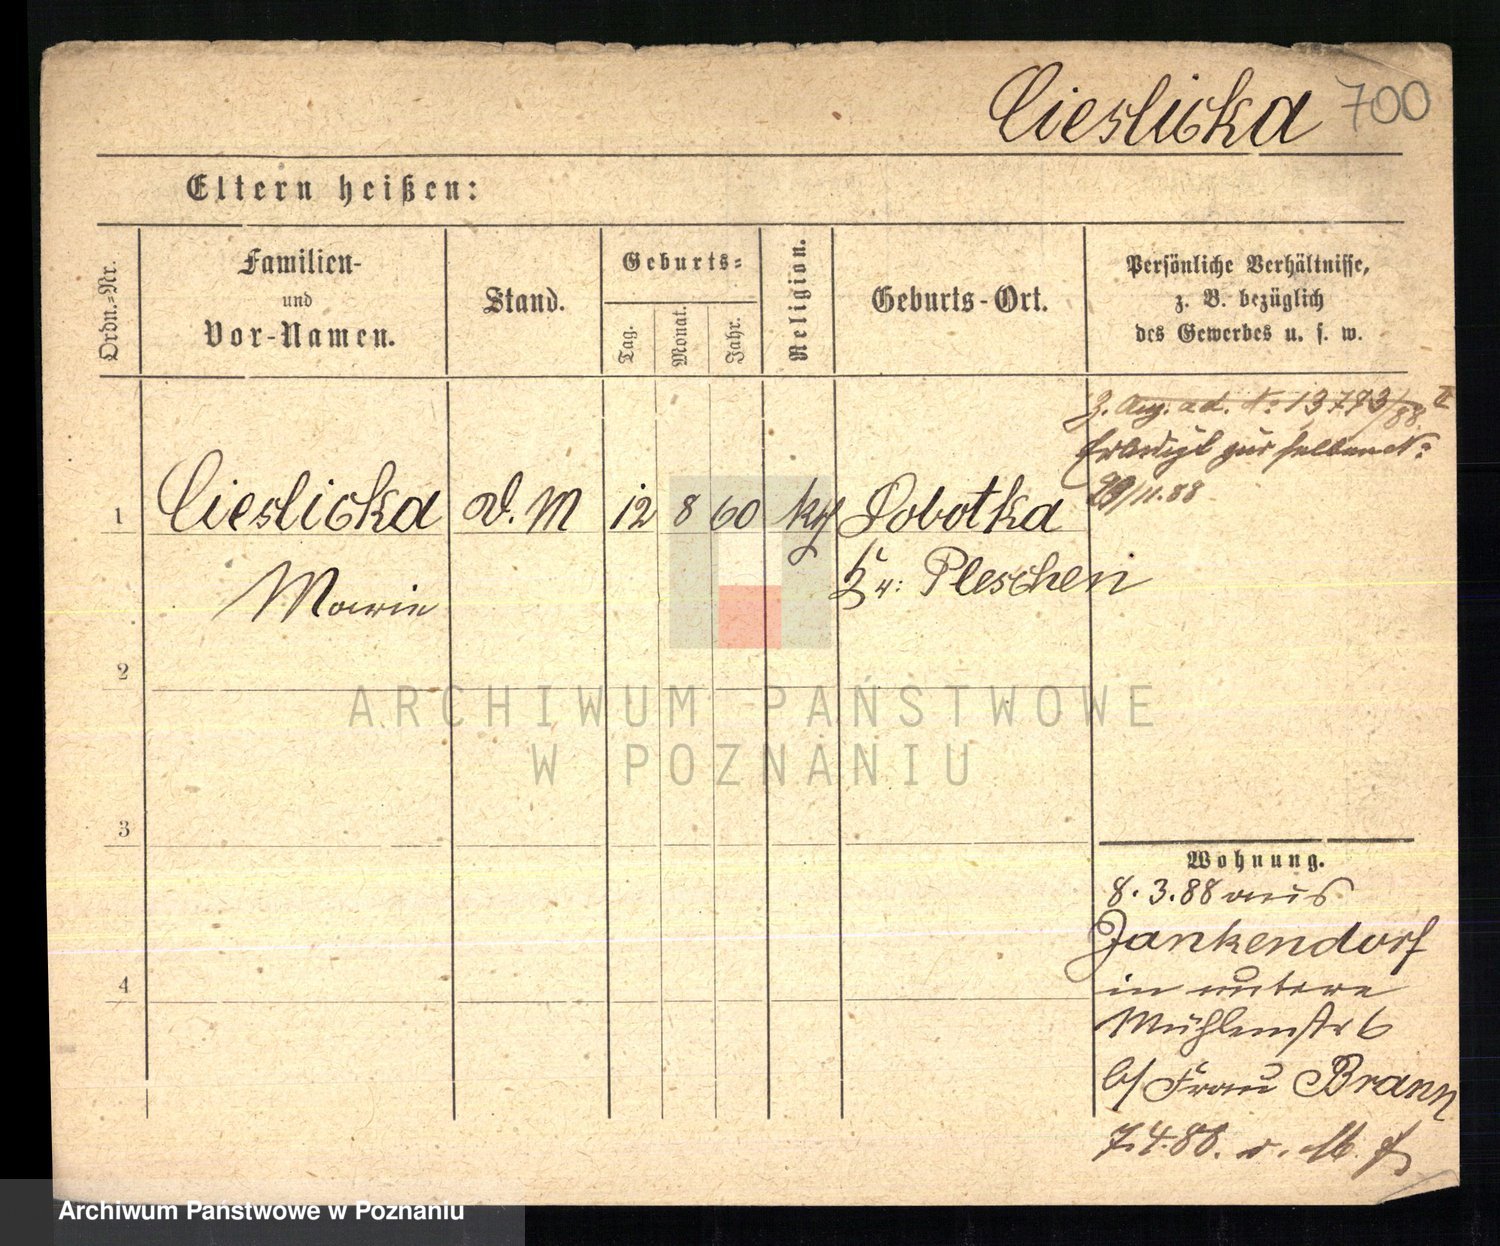 Cieslicka 700
Eltern heißen:
Ordn.-Nr.
Familien-
und
Vor-Namen.
Stand.
Geburts-
Tag.
Monat.
Jahr.
Religion.
Geburts-Ort.
Persönliche Verhältnisse,
z. B. bezüglich
des Gewerbes u. s. w.
ad. No 13773/88 II
Erledigt zur selben No
29/11.88
1 Cieslicka D. M 12 8 60 Sobotka
Marie Kr: Pleschen
2
3
4
Wohnung.
8. 3. 88 aus
Jankendorf
in untere
Mühlenstr 6
b/ Frau Brann
7. 4. 88.
ARCHIWUM PAŃSTWOWE
W POZNANIU
Archiwum Państwowe w Poznaniu